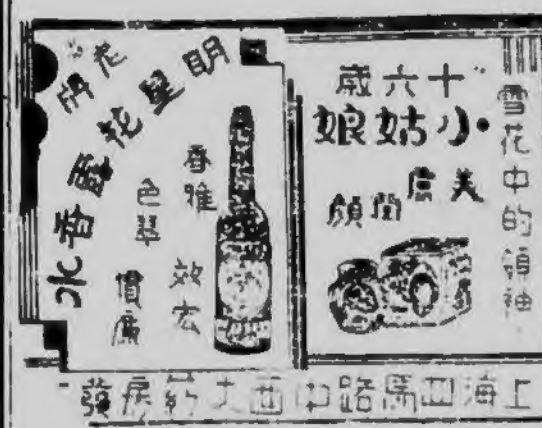 雪花中的領袖
十六歲
小姑娘
美膚潤顏
老牌
明星花露香水
香雅
色翠
效宏
價廉
上海四馬路中西大葯房發